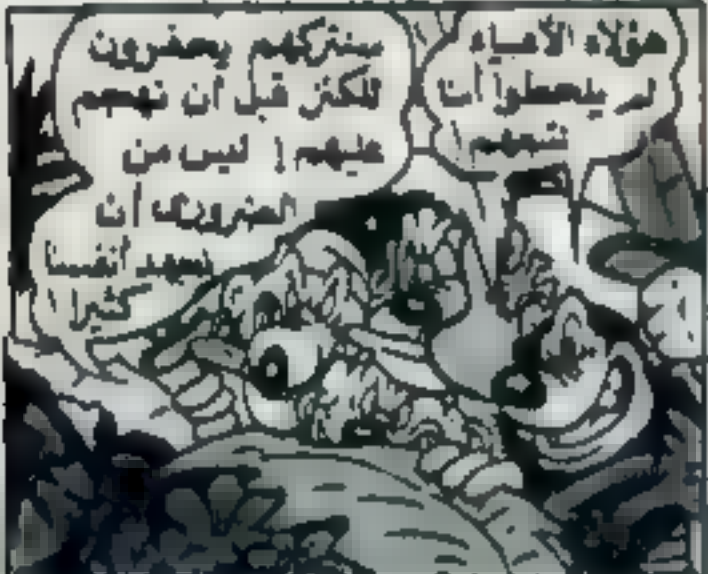 هؤلاء الأغبياء
لم يلحظوا أننا
نتبعهم
سنتركهم يحفرون
للكنز قبل أن نهجم
عليهم ! ليس من
الضرورى أن
نجهد أنفسنا
كثيرا